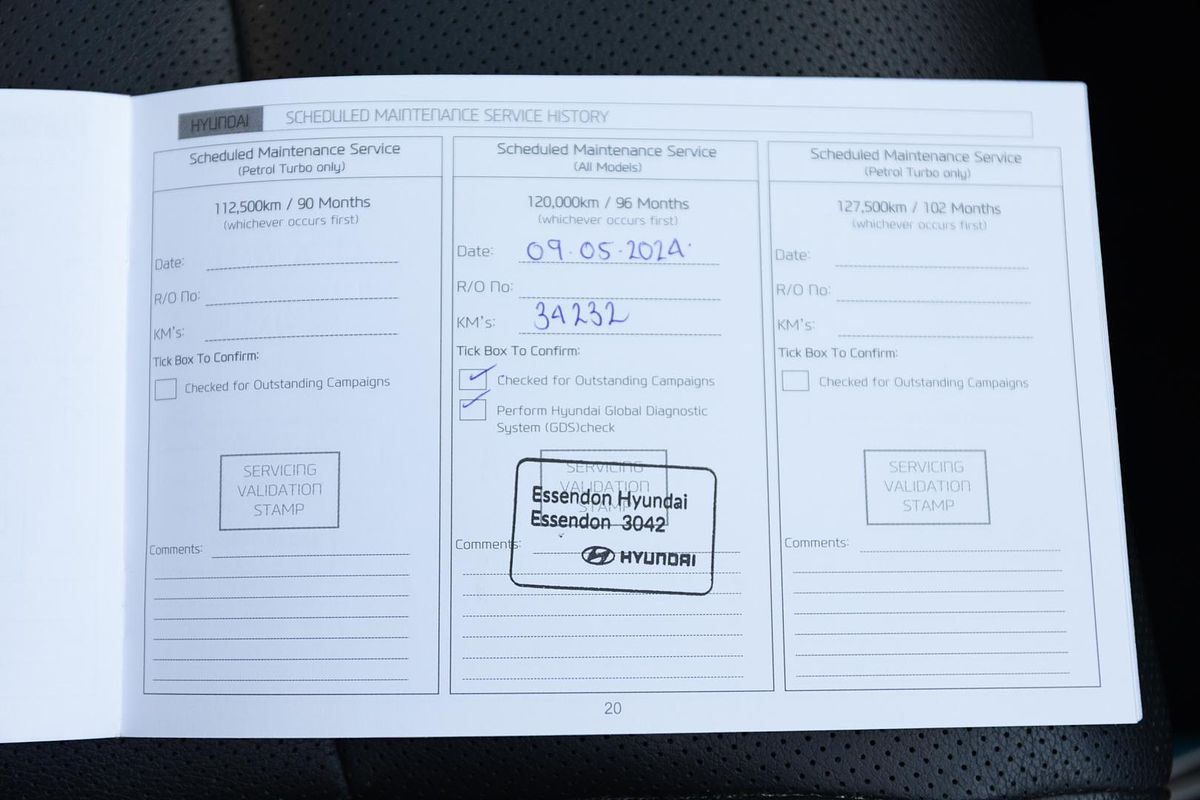 HYUNDAI
SCHEDULED MAINTENANCE SERVICE HISTORY
Scheduled Maintenance Service
(Petrol Turbo only)
112,500km / 90 Months
(whichever occurs first)
Date:
R/O No:
KM's:
Tick Box To Confirm:
Checked for Outstanding Campaigns
SERVICING
VALIDATION
STAMP
Comments:
Scheduled Maintenance Service
(All Models)
120,000km / 96 Months
(whichever occurs first)
Date: 09.05.2024.
R/O No:
KM's: 34232
Tick Box To Confirm:
Checked for Outstanding Campaigns
Perform Hyundai Global Diagnostic
System (GDS)check
SERVICING
VALIDATION
STAMP
Essendon Hyundai
Essendon 3042
HYUNDAI
Comments:
Scheduled Maintenance Service
(Petrol Turbo only)
127,500km / 102 Months
(whichever occurs first)
Date:
R/O No:
KM's:
Tick Box To Confirm:
Checked for Outstanding Campaigns
SERVICING
VALIDATION
STAMP
Comments:
20